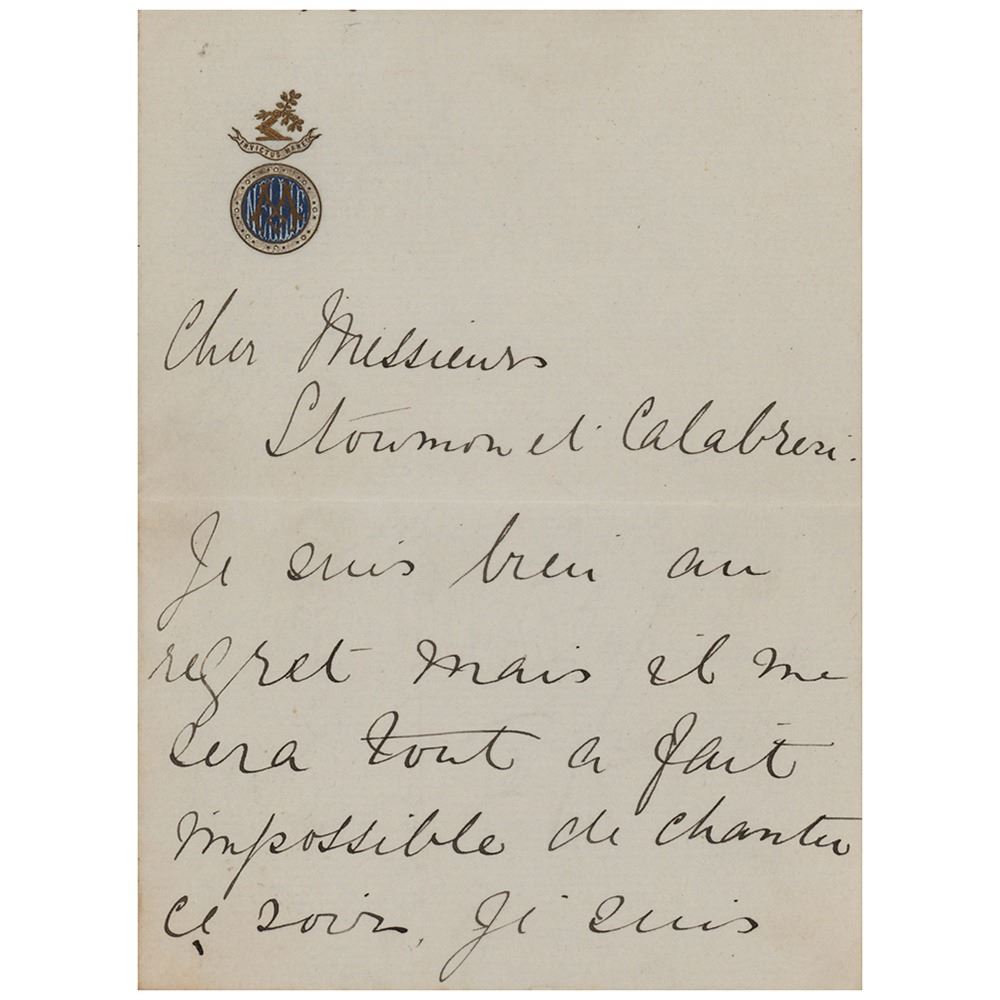 INVICTUS MANEO
Cher Messieurs
Stoumon et Calabresi.
Je suis bien au
regret mais il me
sera tout a fait
impossible de chanter
ce soir. Je suis